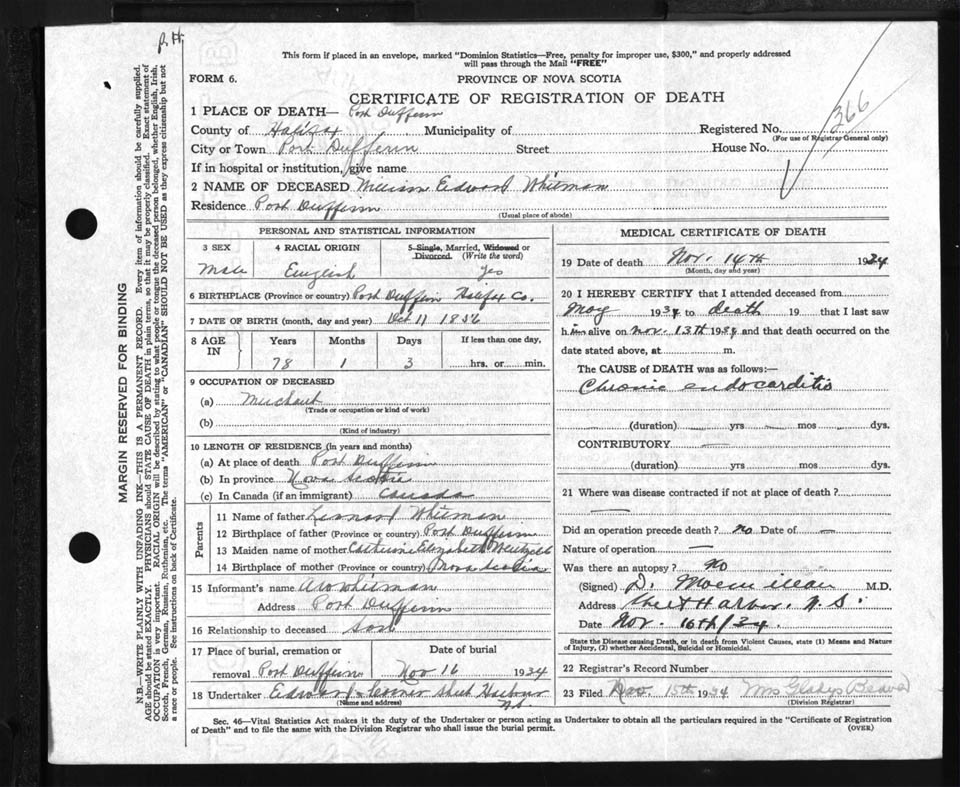 This form if placed in an envelope, marked "Dominion Statistics—Free, penalty for improper use, $300," and properly addressed
will pass through the Mail "FREE"
FORM 6.
PROVINCE OF NOVA SCOTIA
CERTIFICATE OF REGISTRATION OF DEATH
366
1 PLACE OF DEATH— Port Dufferin
County of Halifax Municipality of Registered No.
(For use of Registrar General only)
City or Town Port Dufferin Street House No.
If in hospital or institution, give name
2 NAME OF DECEASED William Edward Whitman
Residence Port Dufferin
(Usual place of abode)
PERSONAL AND STATISTICAL INFORMATION
3 SEX 4 RACIAL ORIGIN 5 Single, Married, Widowed or
Divorced. (Write the word)
Male English Yes
6 BIRTHPLACE (Province or country) Port Dufferin Halifax Co.
7 DATE OF BIRTH (month, day and year) Oct 11 1856
8 AGE IN Years Months Days If less than one day,
78 1 3 hrs. or min.
9 OCCUPATION OF DECEASED
(a) Merchant
(Trade or occupation or kind of work)
(b)
(Kind of industry)
10 LENGTH OF RESIDENCE (In years and months)
(a) At place of death Port Dufferin
(b) In province Nova Scotia
(c) In Canada (if an immigrant) Canada
Parents
11 Name of father Leonard Whitman
12 Birthplace of father (Province or country) Port Dufferin
13 Maiden name of mother Catherine Elizabeth
14 Birthplace of mother (Province or country) Nova Scotia
15 Informant's name Whitman
Address Port Dufferin
16 Relationship to deceased Son
17 Place of burial, cremation or Date of burial
removal Port Dufferin Nov 16 1934
18 Undertaker Sheet Harbour
(Name and address)
N.S.
MEDICAL CERTIFICATE OF DEATH
19 Date of death Nov. 14th 1934
(Month, day and year)
20 I HEREBY CERTIFY that I attended deceased from
May 1934 to death 19 that I last saw
him alive on Nov. 13th 1934 and that death occurred on the
date stated above, at m.
The CAUSE of DEATH was as follows:—
Chronic endocarditis
(duration) yrs mos dys.
CONTRIBUTORY —
(duration) yrs mos dys.
21 Where was disease contracted if not at place of death?
—
Did an operation precede death? No Date of —
Nature of operation —
Was there an autopsy? No
(Signed) D. M.D.
Address Sheet Harbor, N.S.
Date Nov. 16th/34
State the Disease causing Death, or in death from Violent Causes, state (1) Means and Nature
of Injury, (2) whether Accidental, Suicidal or Homicidal.
22 Registrar's Record Number
23 Filed Nov. 15th 1934 Mrs Gladys Beaver
(Division Registrar)
Sec. 46—Vital Statistics Act makes it the duty of the Undertaker or person acting as Undertaker to obtain all the particulars required in the "Certificate of Registration
of Death" and to file the same with the Division Registrar who shall issue the burial permit.
(OVER)
MARGIN RESERVED FOR BINDING
N.B.—WRITE PLAINLY WITH UNFADING INK—THIS IS A PERMANENT RECORD. Every item of information should be carefully supplied.
AGE should be stated EXACTLY. PHYSICIANS should STATE CAUSE OF DEATH in plain terms, so that it may be properly classified. Exact statement of
OCCUPATION is very important. RACIAL ORIGIN will be described by stating to what people or tongue the deceased person belonged, whether English, Irish,
Scotch, French, German, Russian, Ruthenian, etc. The terms "AMERICAN" or "CANADIAN" SHOULD NOT BE USED as they express citizenship but not
a race or people. See instructions on back of Certificate.